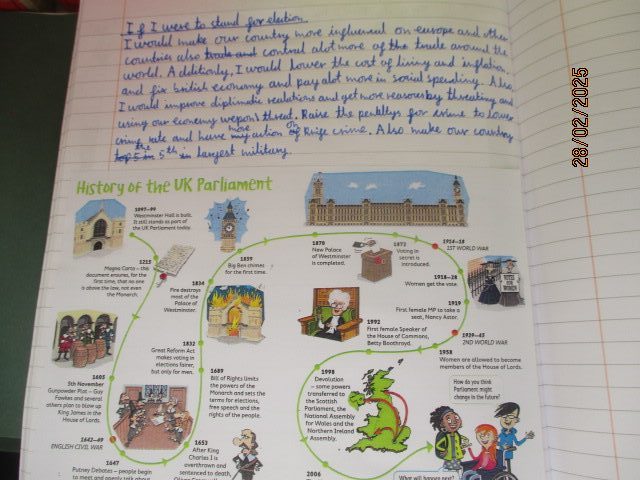 If I were to stand for election.
I would make our country more influencal on europe and other
countries also trade and control alot more of the trade around the
world. Additionly, I would lower the cost of living and inflation.
and fix british economy and pay alot more in social spending. Also
I would improve diplimatic realations and get more reasorces by threating and
using our economy weapons threat. Raise the penteltys for crime to lower
crime rate and have more action on knife crime. Also make our country
top 5 in the 5th in largest military.
28/02/2025
History of the UK Parliament
1097–99
Westminster Hall is built.
It still stands as part of
the UK Parliament today.
1215
Magna Carta – this
document ensures, for the
first time, that no one
is above the law, not even
the Monarch.
1605
5th November
Gunpowder Plot – Guy
Fawkes and several
others plan to blow up
King James in the
House of Lords.
1642–49
ENGLISH CIVIL WAR
1647
Putney Debates – people begin
to meet and openly talk about
1653
After King
Charles I is
overthrown and
sentenced to death,
1689
Bill of Rights limits
the powers of the
Monarch and sets the
terms for elections,
free speech and the
rights of the people.
1832
Great Reform Act
makes voting in
elections fairer,
but only for men.
1834
Fire destroys
most of the
Palace of
Westminster.
1859
Big Ben chimes
for the first time.
1870
New Palace
of Westminster
is completed.
1872
Voting in
secret is
introduced.
1914–18
1ST WORLD WAR
1918–28
Women get the vote.
VOTES
FOR
WOMEN
1919
First female MP to take a
seat, Nancy Astor.
1939–45
2ND WORLD WAR
1958
Women are allowed to become
members of the House of Lords.
1992
First female Speaker of
the House of Commons,
Betty Boothroyd.
1998
Devolution
– some powers
transferred to
the Scottish
Parliament, the
National Assembly
for Wales and the
Northern Ireland
Assembly.
2006
How do you think
Parliament might
change in the future?
What will happen next?